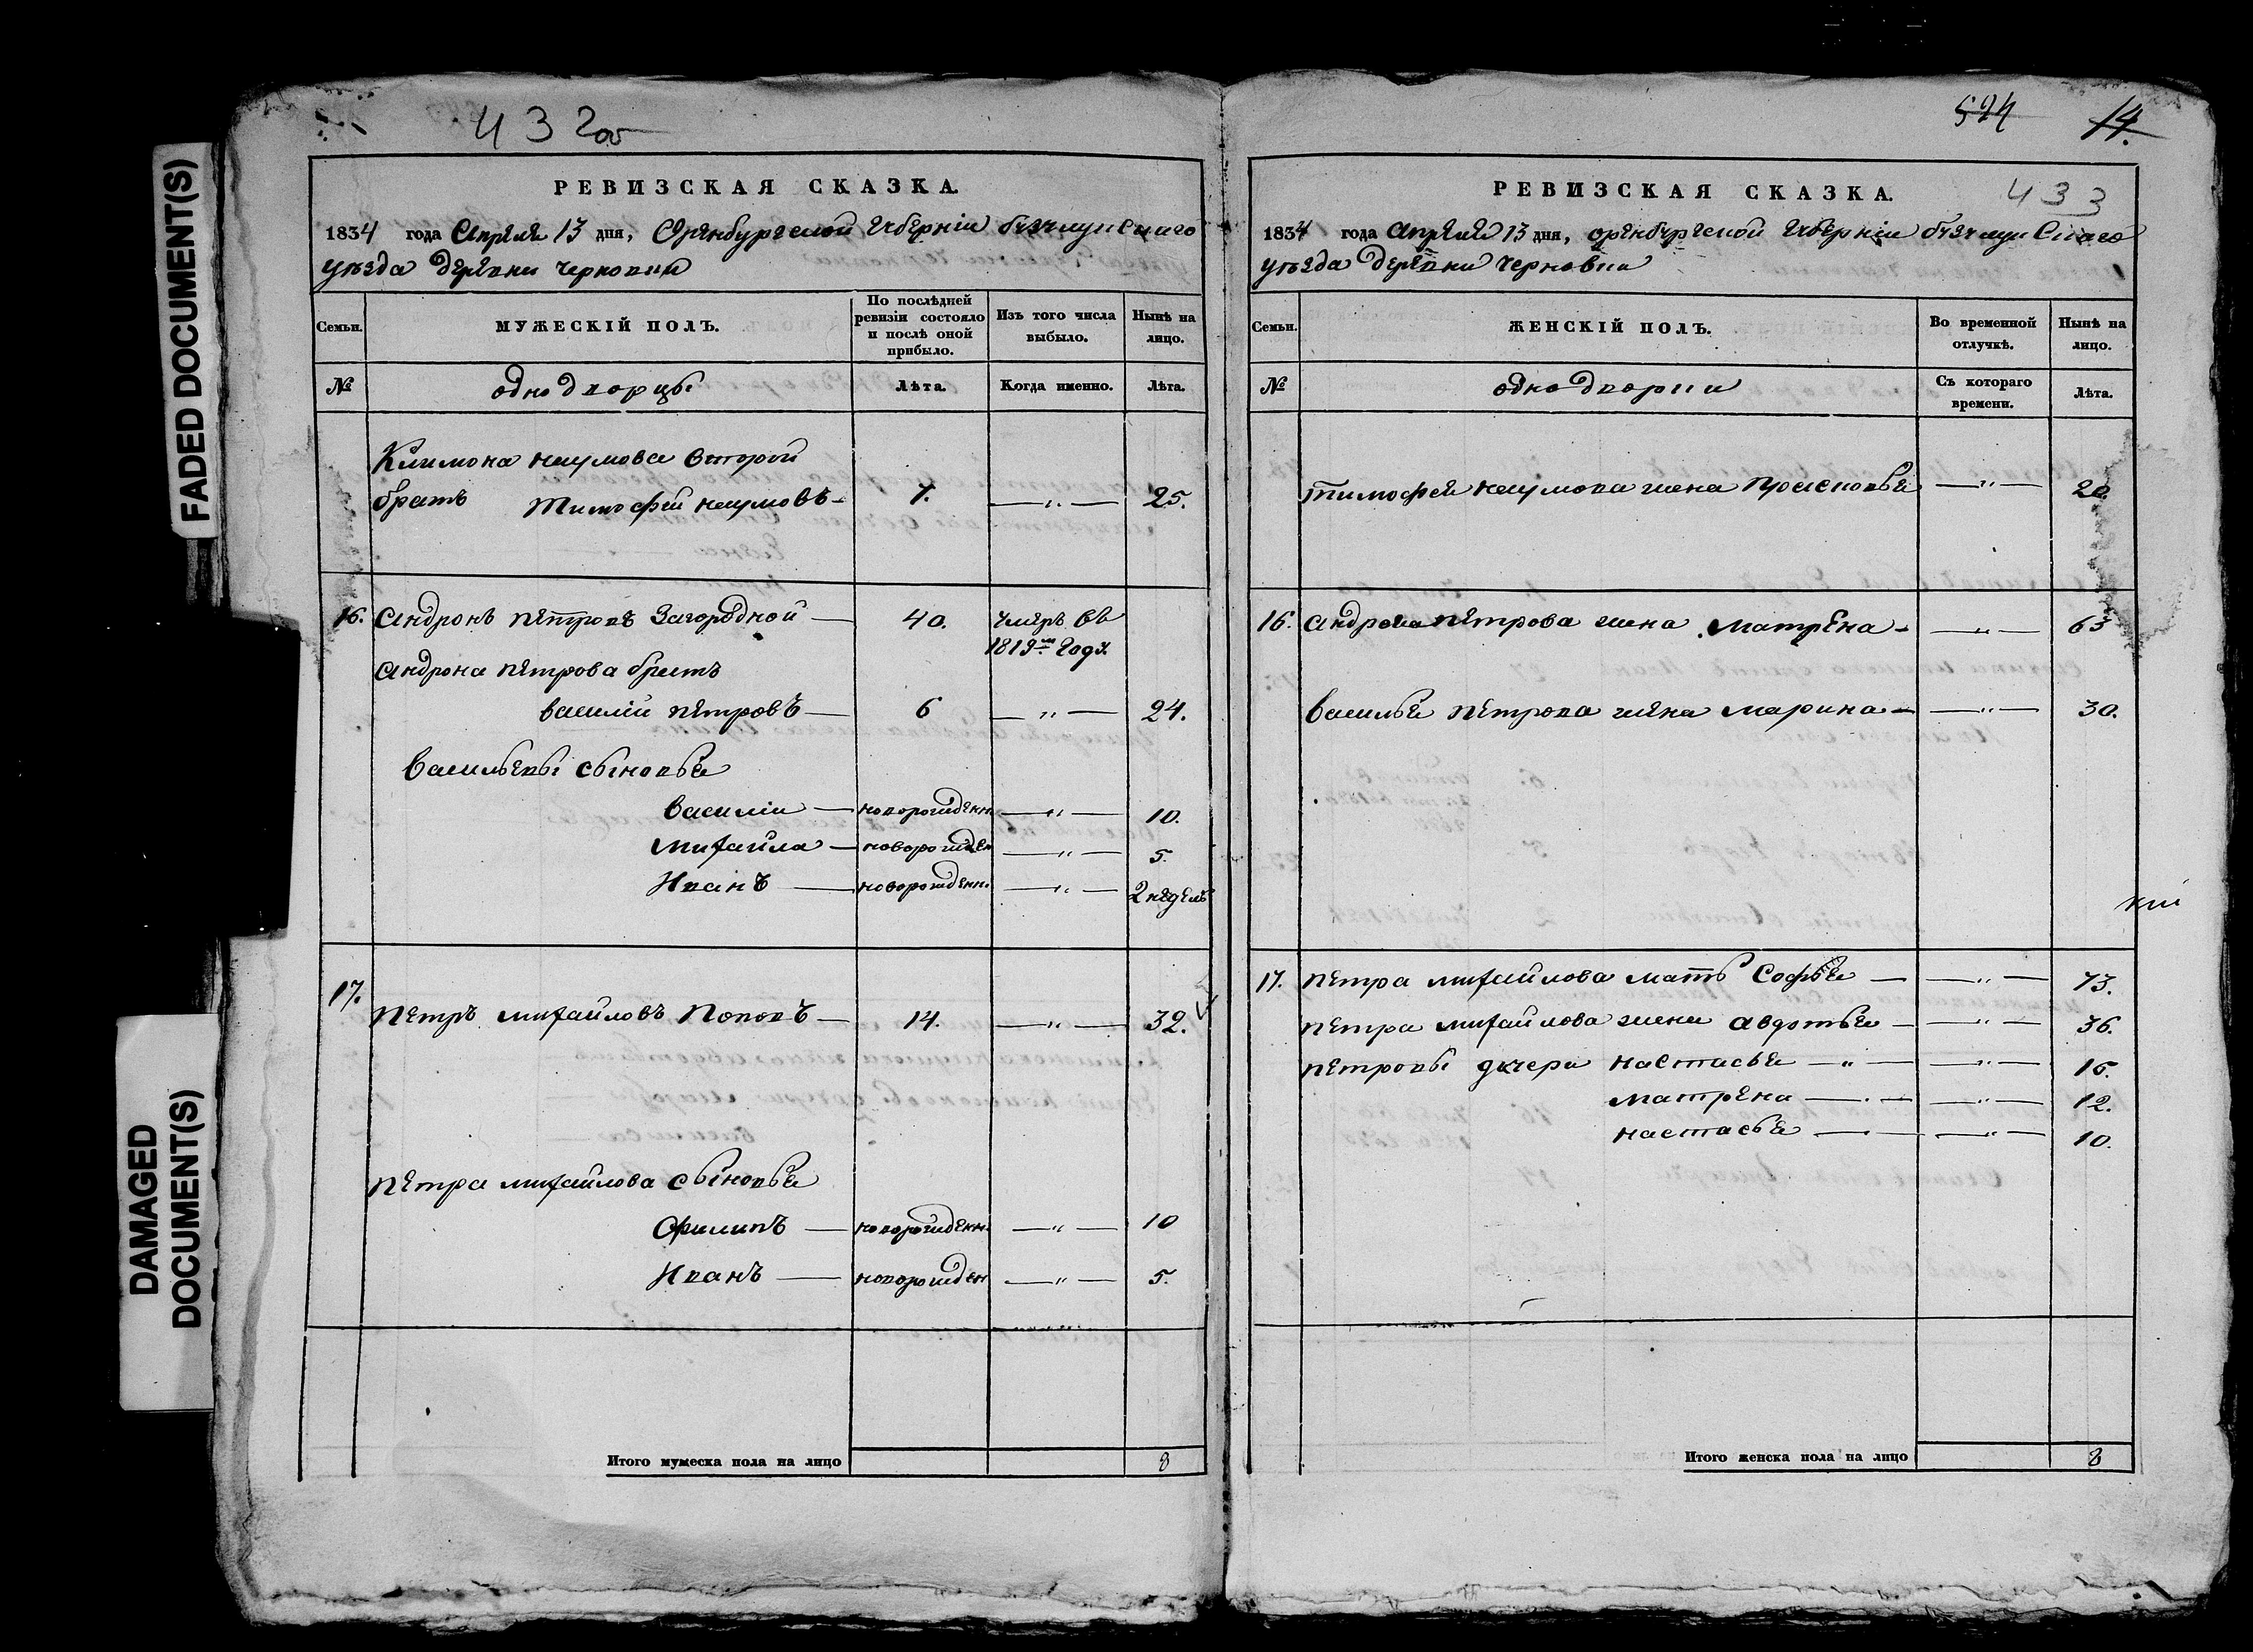 FADED DOCUMENT(S)
DAMAGED
DOCUMENT(S)
432об
РЕВИЗСКАЯ СКАЗКА.
1834 года Апреля 13 дня, Оренбургской губернии бузулукскаго
уезда деревни черновки
Семьи.
МУЖЕСКІЙ ПОЛЪ.
По послѣдней ревизіи состояло и послѣ оной прибыло.
Изъ того числа выбыло.
Нынѣ на лицо.
№
однодворцы
Лѣта.
Когда именно.
Лѣта.
Климона наумова второй
братъ Тимофей наумовъ — 7. — „ — 25.
16. Андронъ петровъ Загородной — 40. умеръ въ
1819м году.
Андрона петрова братъ
василій петровъ — 6 — „ — 24.
васильевы сыновья
василіи — новорожденн. — „ — 10.
михайла — новорожден — „ — 5.
Иванъ — новорожденн. — „ — 2 недель
17. петръ михайловъ Поповъ — 14. — „ — 32.
петра михайлова сыновья
Филипъ — новорожденн. — „ — 10
Иванъ — новорожден — „ — 5.
Итого мужеска пола на лицо 8
524 14.
РЕВИЗСКАЯ СКАЗКА.
433
1834 года апреля 13 дня, оренбургской губерніи бузулукскаго
уезда деревни черновки
Семьи.
ЖЕНСКІЙ ПОЛЪ.
Во временной отлучкѣ.
Нынѣ на лицо.
№
однодворки
Съ котораго времени.
Лѣта.
тимофея наумова жена Прасковья — „ — 20.
16. андрона петрова жена матрена — — „ — 63
василья петрова жена марина — — „ — 30.
17. петра михайлова мать Софья — — „ — 73.
петра михайлова жена авдотья — — „ — 36.
петровы дочери настасья — „ — — „ — 15.
матрена — — „ — 12.
настасья — — „ — 10.
Итого женска пола на лицо 8